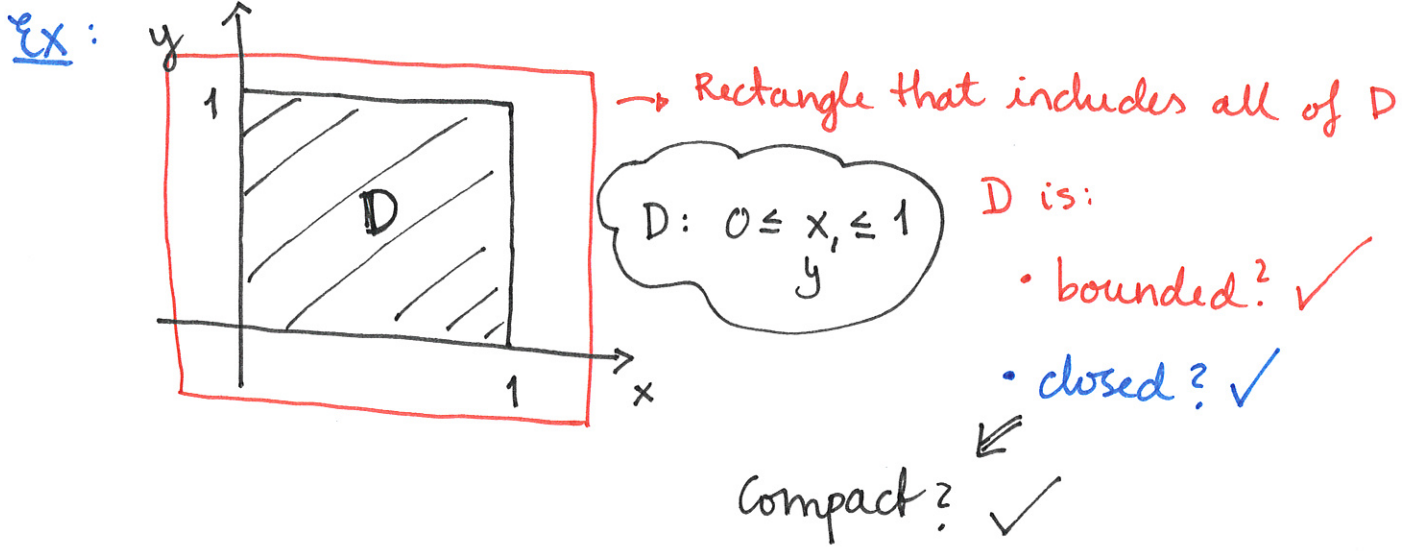 Ex:
y
1
→ Rectangle that includes all of D
D
D: 0 ≤ x, ≤ 1
y
D is:
• bounded? ✓
• closed? ✓
1
x
Compact? ✓